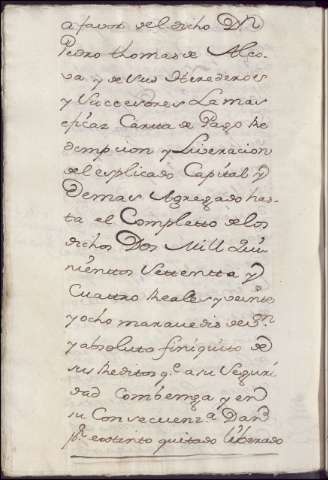 a favor del dicho Dn
Pedro thomas de Alco-
va y de sus Herederos
y Subccesores La mas
eficaz Carta de Pago Re
dempcion y Liveracion
del esplicado Capital y
Demas Agregado has-
ta el Completto de los
dichos Dos Mill Qui-
nienttos Settentta y
Cuattro Reales y veinte
y ocho maravedis de Vn
y absoluto finiquito de
sus Reditos qe a su Seguri
dad Combenga y en
su Consecuenza Dan
pr extinto quitado liberado